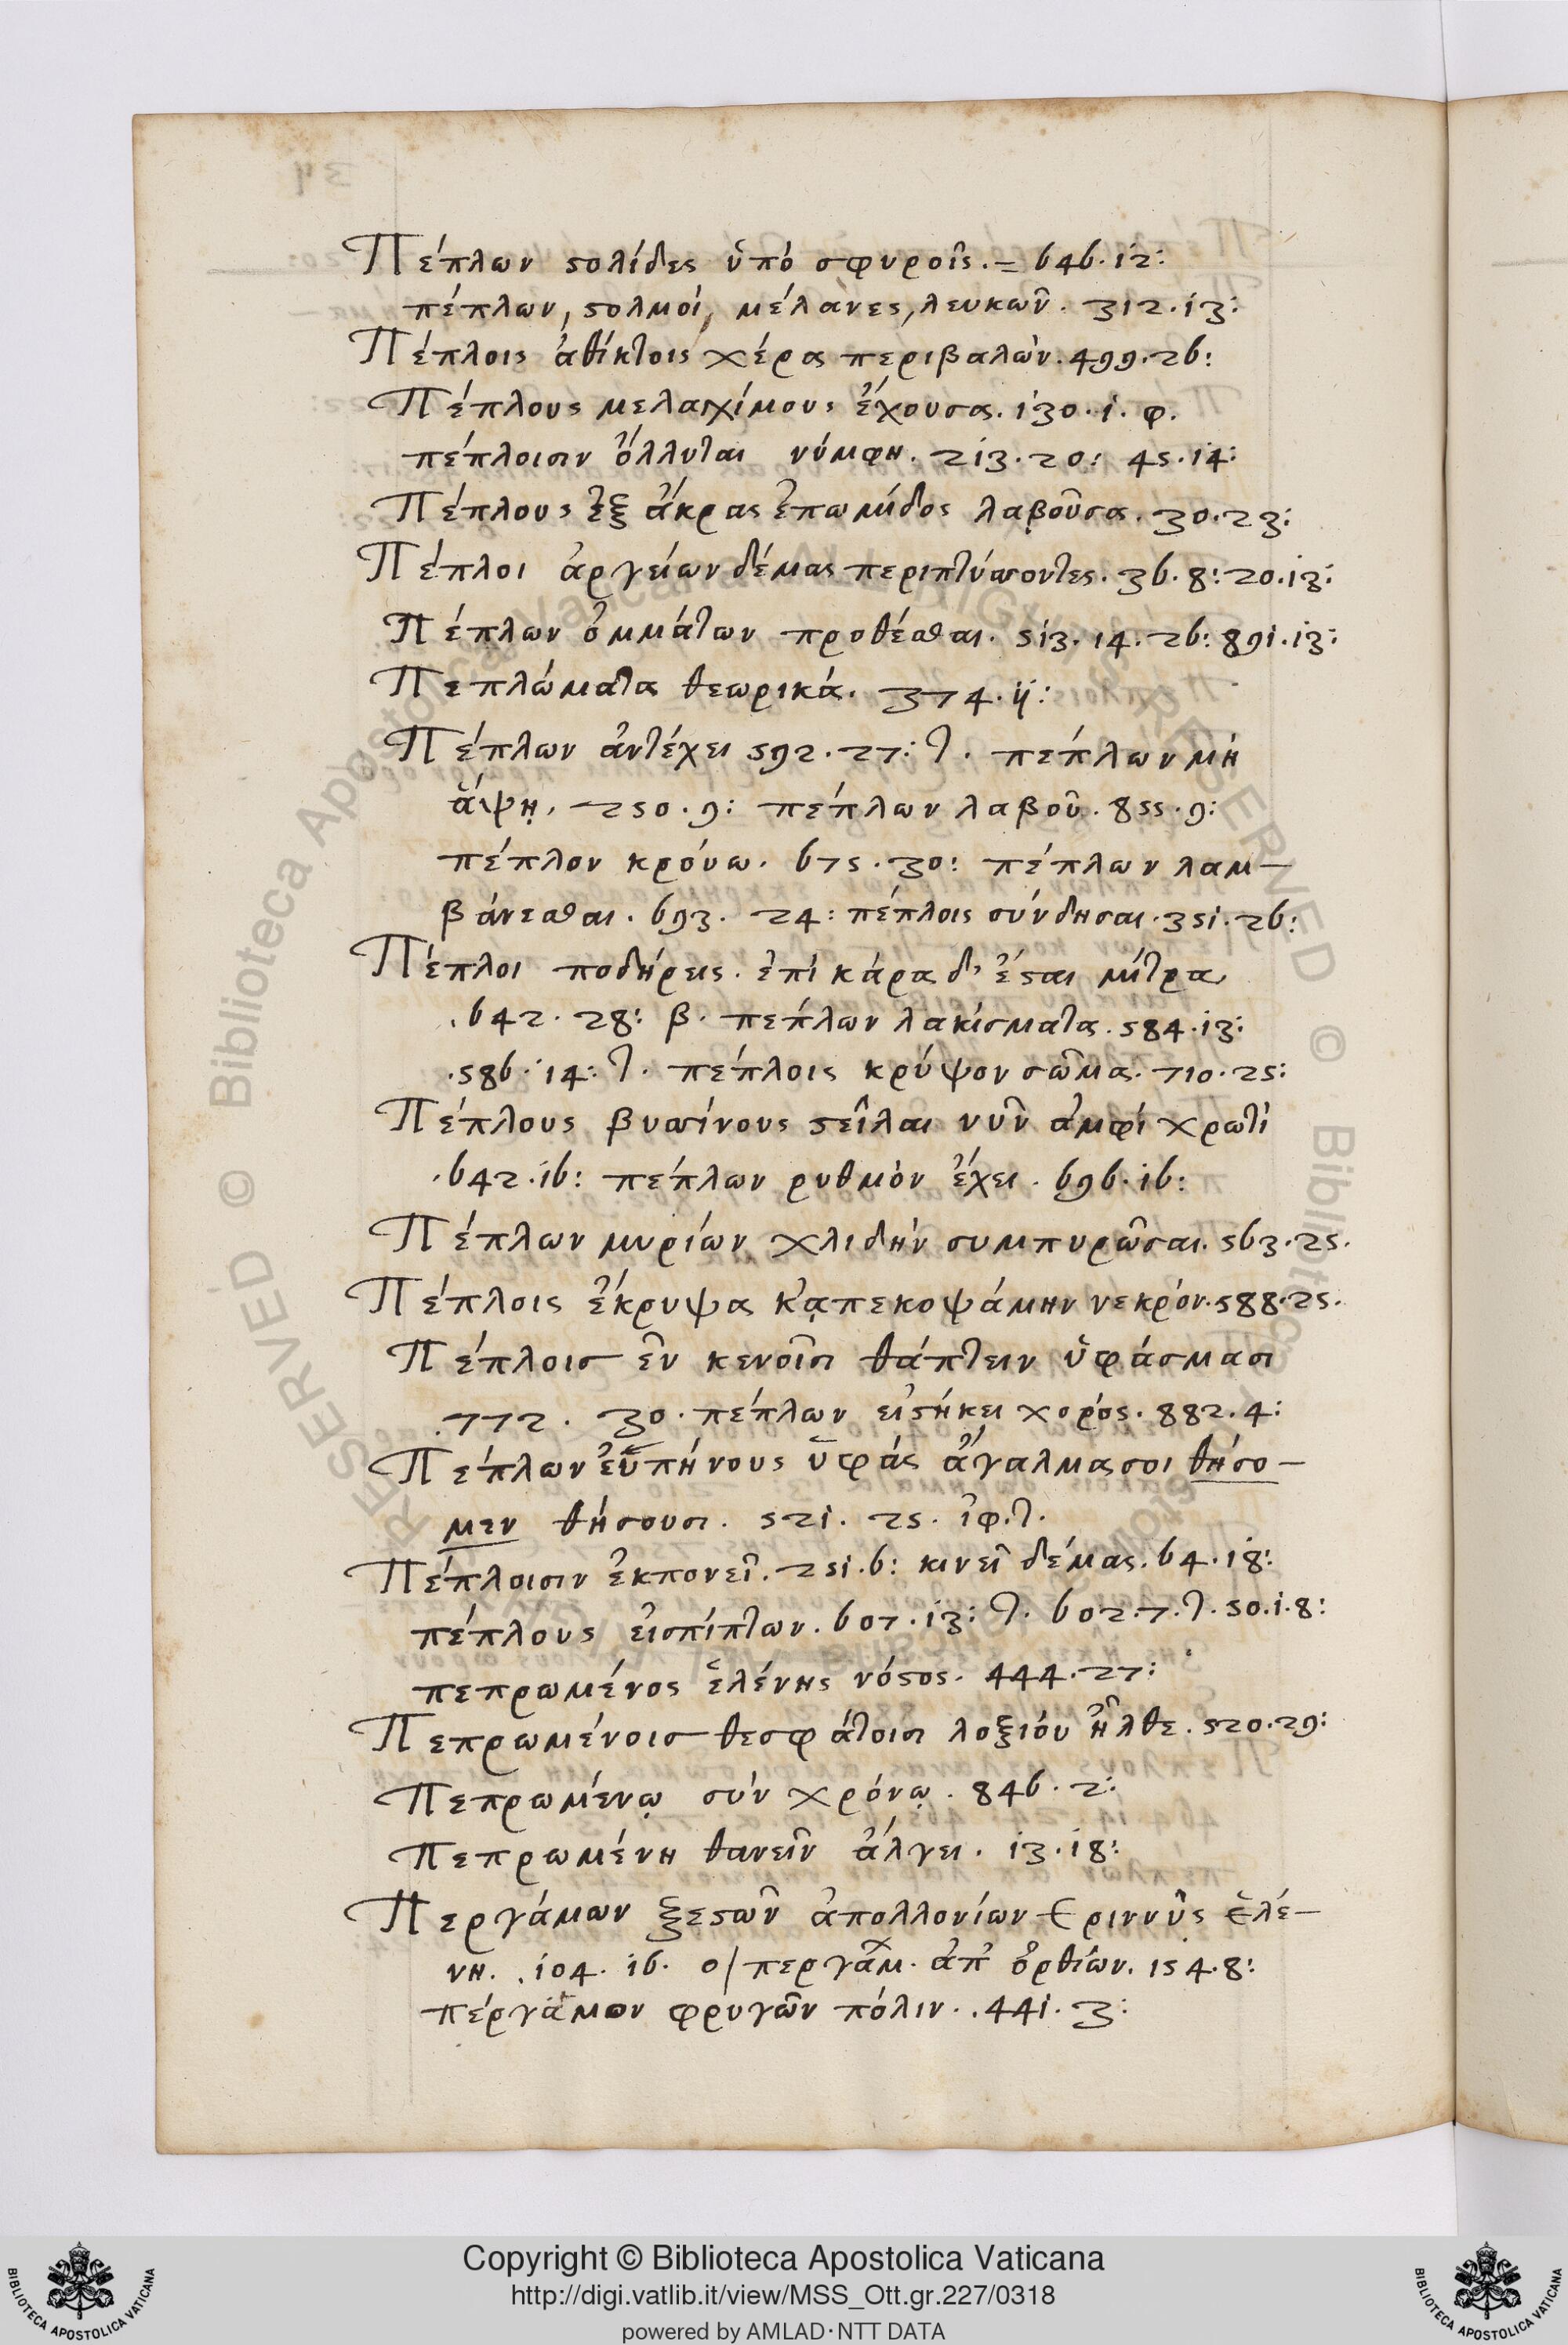 Πέπλων ϛολίδες ὑπὸ σφυροῖς. = 646. 12:
πέπλων, ϛολμοὶ, μέλανες, λευκῶν. 312. 13:
Πέπλοις ἀθίκτοις χέρας περιβαλών. 499. 26:
Πέπλους μελαγχίμους ἔχουσα. 130. 1. φ.
πέπλοισιν ὄλλυται νύμφη. 213. 20: 45. 14:
Πέπλους ἐξ ἄκρας ἐπωμίδος λαβοῦσα. 30. 23:
Πέπλοι ἀργείων δέμας περιπτύσσοντες. 36. 8: 20. 13:
Πέπλων ὀμμάτων προθέσθαι. 513. 14. 26: 891. 13:
Πεπλώματα θεωρικά. 374. 11:
Πέπλων ἀντέχει 592. 27: τ. πέπλων μὴ
ἅψῃ. 250. 9: πέπλων λαβοῦ. 855. 9:
πέπλον κρούω. 675. 30: πέπλων λαμ-
βάνεσθαι. 693. 24: πέπλοις σύνδησαι. 351. 26:
Πέπλοι ποδήρεις. ἐπὶ κάρα δ' ἔϛαι μίτρα
642. 28: β. πέπλων λακίσματα. 584. 13:
586. 14: τ. πέπλοις κρύψον σῶμα. 710. 25:
Πέπλους βυσσίνους ϛεῖλαι νῦν ἀμφὶ χρωτὶ
642. 16: πέπλων ρυθμὸν ἔχει. 696. 16:
Πέπλων μυρίων χλιδὴν συμπυρῶσαι. 563. 25.
Πέπλοις ἔκρυψα κᾀπεκοψάμην νεκρόν. 588. 25.
Πέπλοισ ἐν κενοῖσι θάπτειν ὑφάσμασι
772. 30. πέπλων εἱϛήκει χορός. 882. 4:
Πέπλων εὐπήνους ὑφὰς ἄγαλμα σοι θήσο-
μεν θήσουσι. 521. 25. ἰφ. τ.
Πέπλοισιν ἐκπονεῖ. 251. 6: κινεῖ δέμας. 64. 18:
πέπλους εἰσπίπτων. 607. 13: τ. 602. 7. τ. 50. 1. 8:
πεπρωμένος ἑλένης νόϛος. 444. 27:
Πεπρωμένοισ θεσφάτοισι λοξίου ἦλθε. 520. 29:
Πεπρωμένῳ σὺν χρόνῳ. 846. 2:
Πεπρωμένη θανεῖν ἄλγει. 13. 18:
Περγάμων ξεϛῶν ἀπολλονίων Ερινννῦς ἑλέ-
νη. 104. 16. ο/ περγάμ. ἀπ' ὀρθίων. 154. 8:
πέργαμον φρυγῶν πόλιν. 441. 3:
Copyright © Biblioteca Apostolica Vaticana
http://digi.vatlib.it/view/MSS_Ott.gr.227/0318
powered by AMLAD·NTT DATA